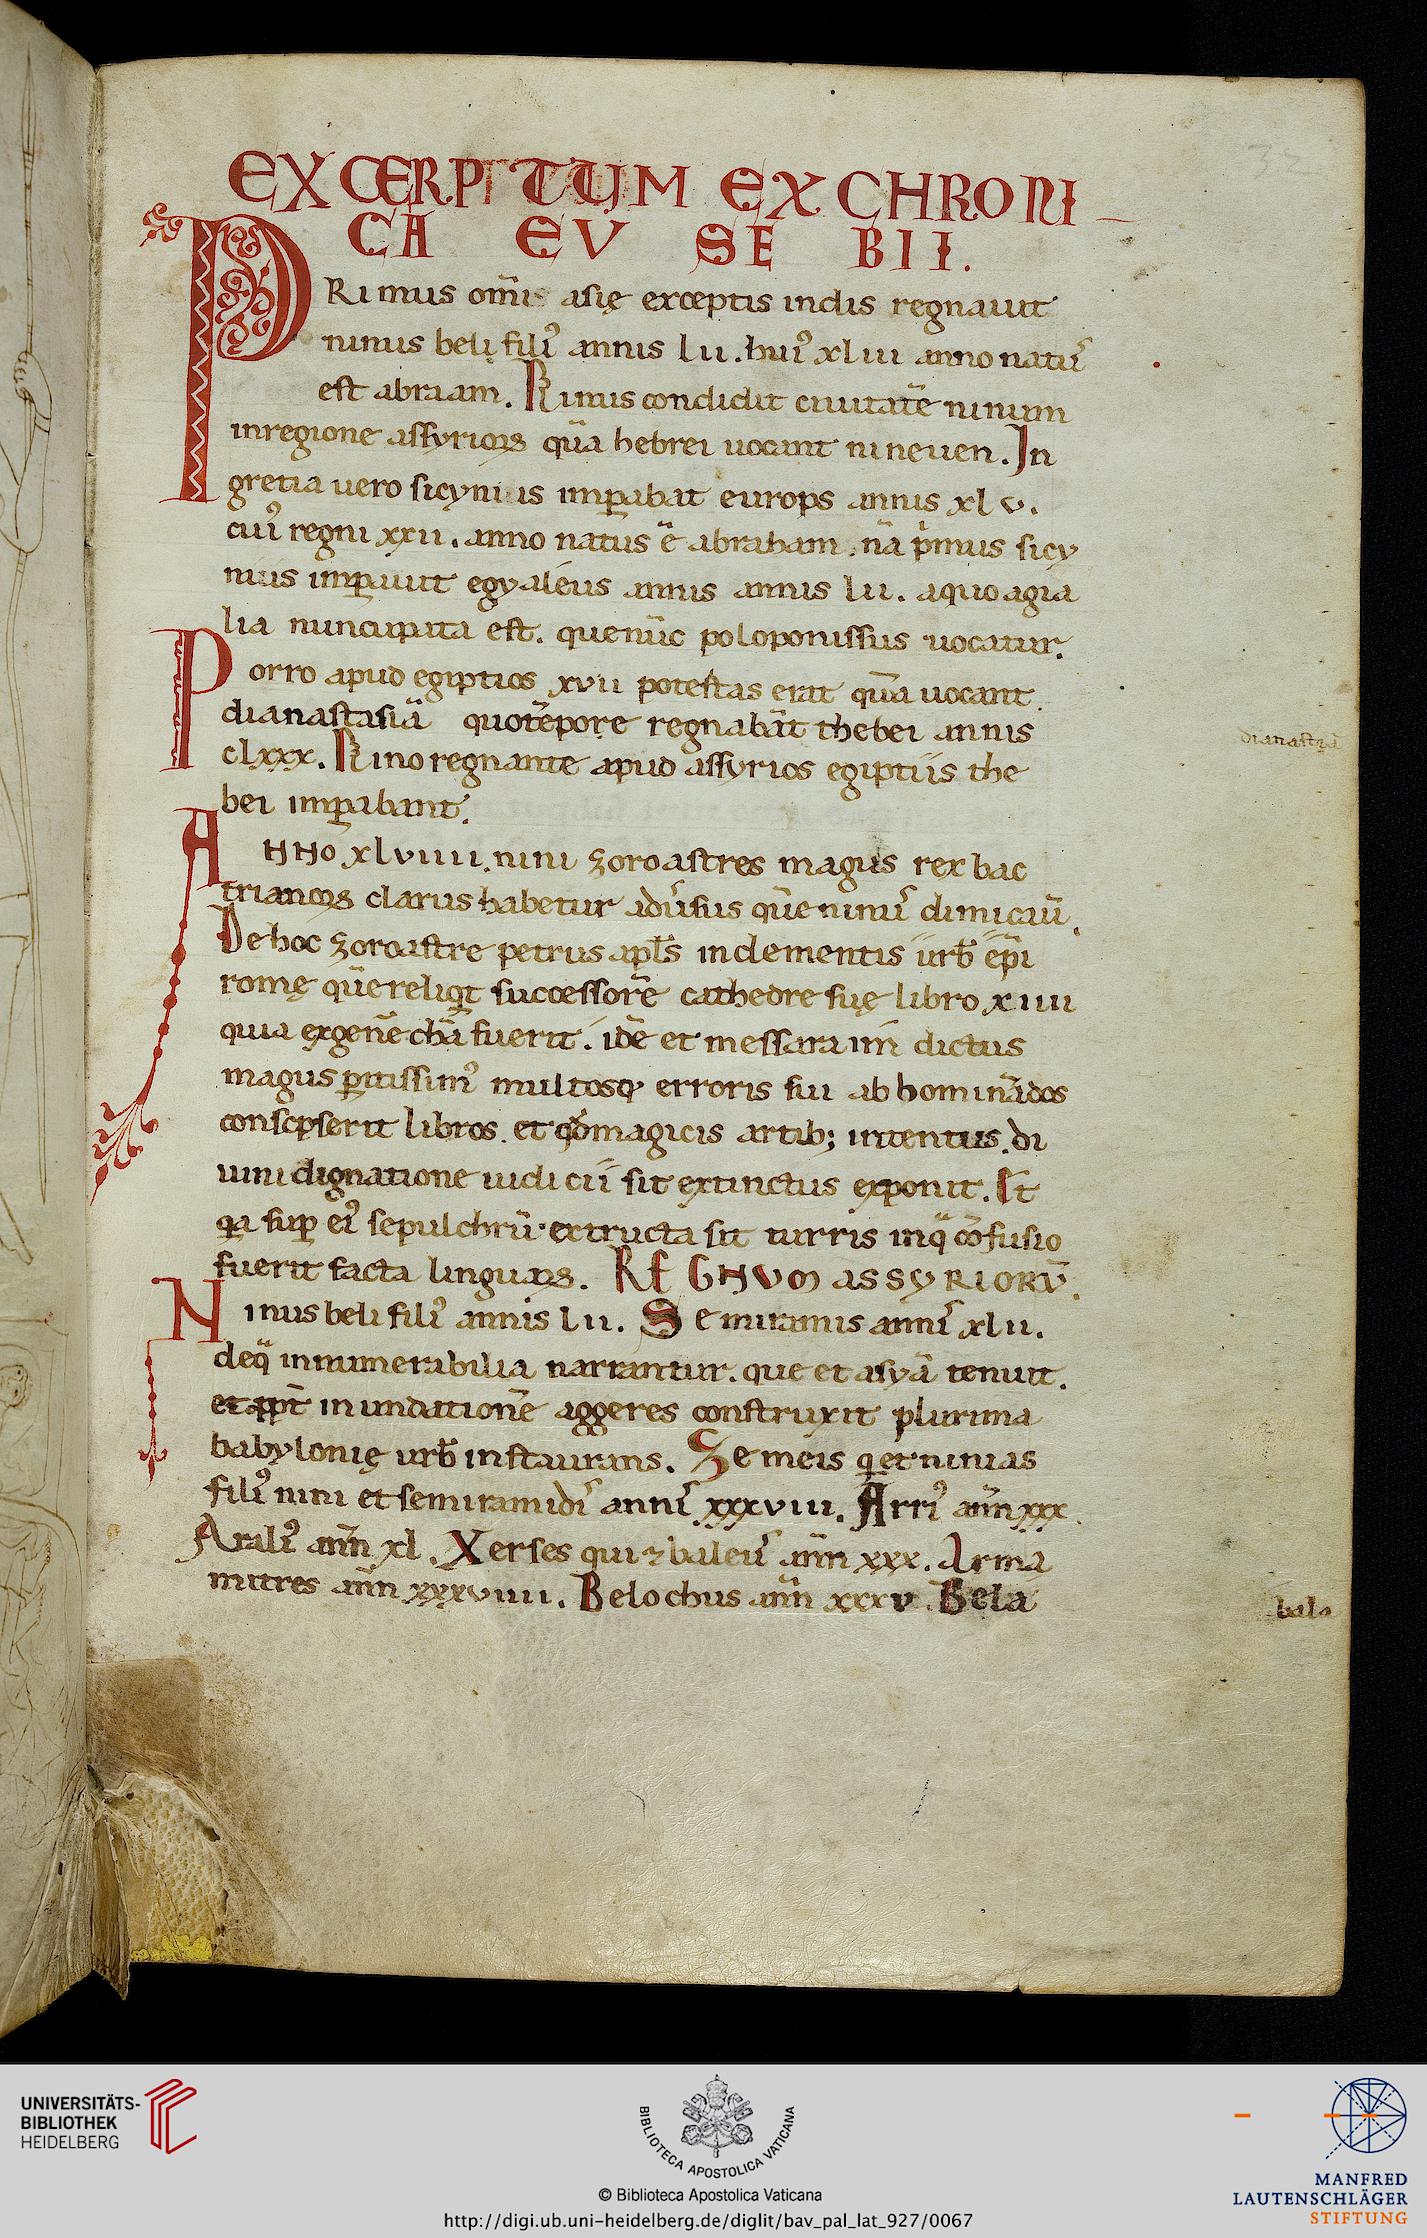 32
EXCERPTUM EX CHRONI
CA EUSEBII.
PRimus om̅is asię exceptis indis regnauit
ninus beli filiꝰ annis lii. huiꝰ xliii anno natꝰ
est abraam. Ninus condidit ciuitatē ninum
inregione assyrioꝝ quā hebrei uocant nineuen. In
gretia uero sicyniis imꝑabat europs annis xlv.
cuiꝰ regni xxii. anno natus ē abraham. nā pͥmus sicy
niis imꝑauit egyaleus annis annis lii. aquo agia
lia nuncupata est. que nūc poloponissus uocatur.
Porro apud egiptios xvii potestas erat quā uocant.
dianastasiā quo tēpore regnabāt thebei annis
clxxx. Nino regnante apud assyrios egiptiis the
bei imꝑabant.
dianastiā
ANNo xlviiii. nini zoroastres magus rex bac
trianoꝝ clarus habetur aduͥsus quē ninuͥ dimicauͥ.
De hoc zoroastre petrus apl̅s in clementis urb̅ ep̅i
romę quē reliqͥt successorē cathedre suę libro xiiii
quia ex gen̄e chā fuerit. idē et messaraim̅ dictus
magus ꝑitissimꝰ multosq; erroris sui abhominādos
conscͥpserit libros. et qͦmͦ magicis artib; intentus. di
uini dignatione iudicii sit extinctus exponit. Et
qͣa suꝑ eiꝰ sepulchrū extructa sit turris in qͣ cōfusio
fuerit facta linguaꝝ. REGNUM ASSYRIORŪ.
Ninus beli filiꝰ annis lii. Semiramis anniͥ xlii.
de qͣ innumerabilia narrantur. que et asyā tenuit.
et ꝓpt̄ inundationē aggeres construxit plurima
babylonię urb̅ instaurans. Semeis qͥ et ninias
filiꝰ nini et semiramidiͥ anniͥ xxxviii. Arriꝰ ann̅ xxx.
Araliꝰ ann̅ xl. Xerses qui ⁊ baleuͥ ann̅ xxx. Arma
mitres ann̅ xxxviiii. Belochus ann̅ xxxv. Bela
bala
UNIVERSITÄTS-
BIBLIOTHEK
HEIDELBERG
BIBLIOTECA APOSTOLICA VATICANA
© Biblioteca Apostolica Vaticana
http://digi.ub.uni-heidelberg.de/diglit/bav_pal_lat_927/0067
MANFRED
LAUTENSCHLÄGER
STIFTUNG